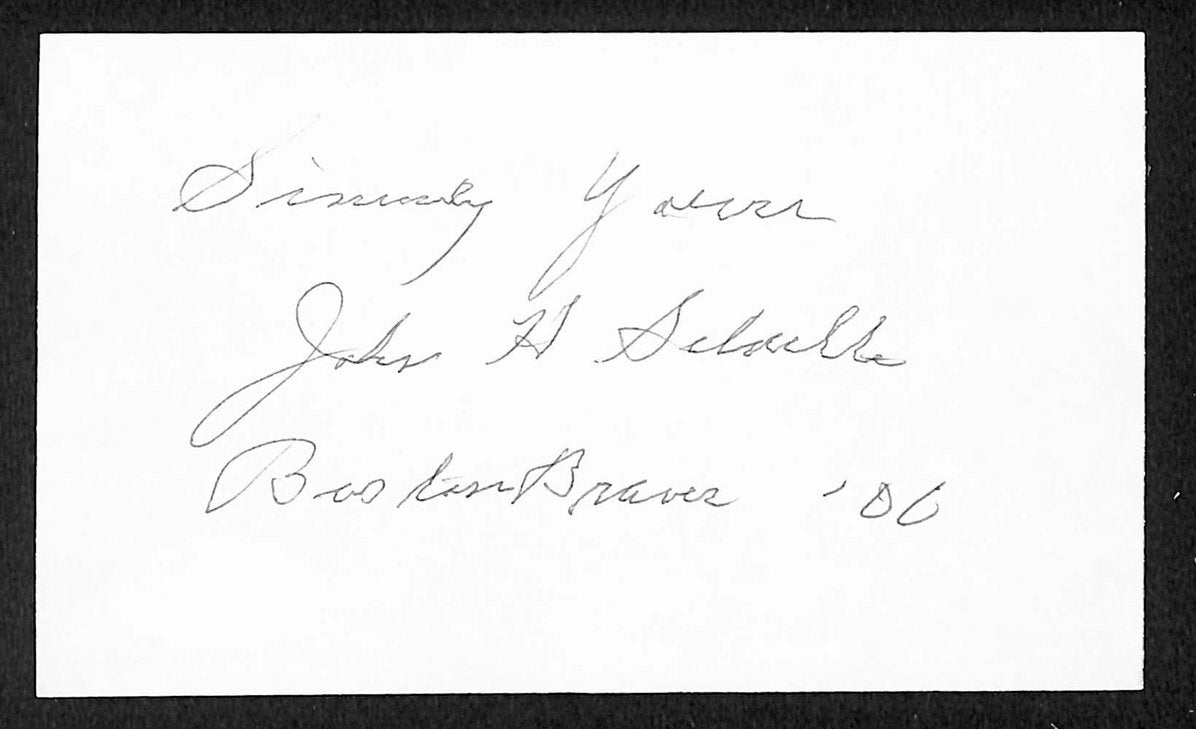 Sincerely Yours
John H Schulte
Boston Braves '06